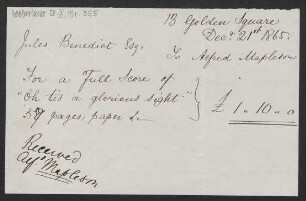 13 Golden Square
Decr 21st 1865.
Jules Benedict Esq;
To Alfred Mapleson
For a Full Score of
"Oh 'tis a glorious sight"
57 pages, paper &.
£1.10.0
Received
Alfd Mapleson